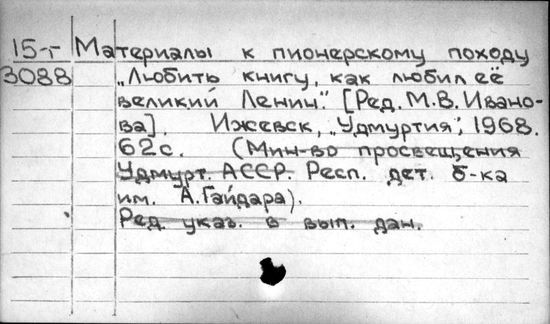 15-г Материалы к пионерскому походу
3088 „Любить книгу, как любил её
великий Ленин". [Ред. М.В. Ивано-
ва]. Ижевск, „Удмуртия", 1968.
62с. (Мин-во просвещения
Удмурт. АССР. Респ. дет. б-ка
им. А. Гайдара).
Ред. указ. в вып. дан.